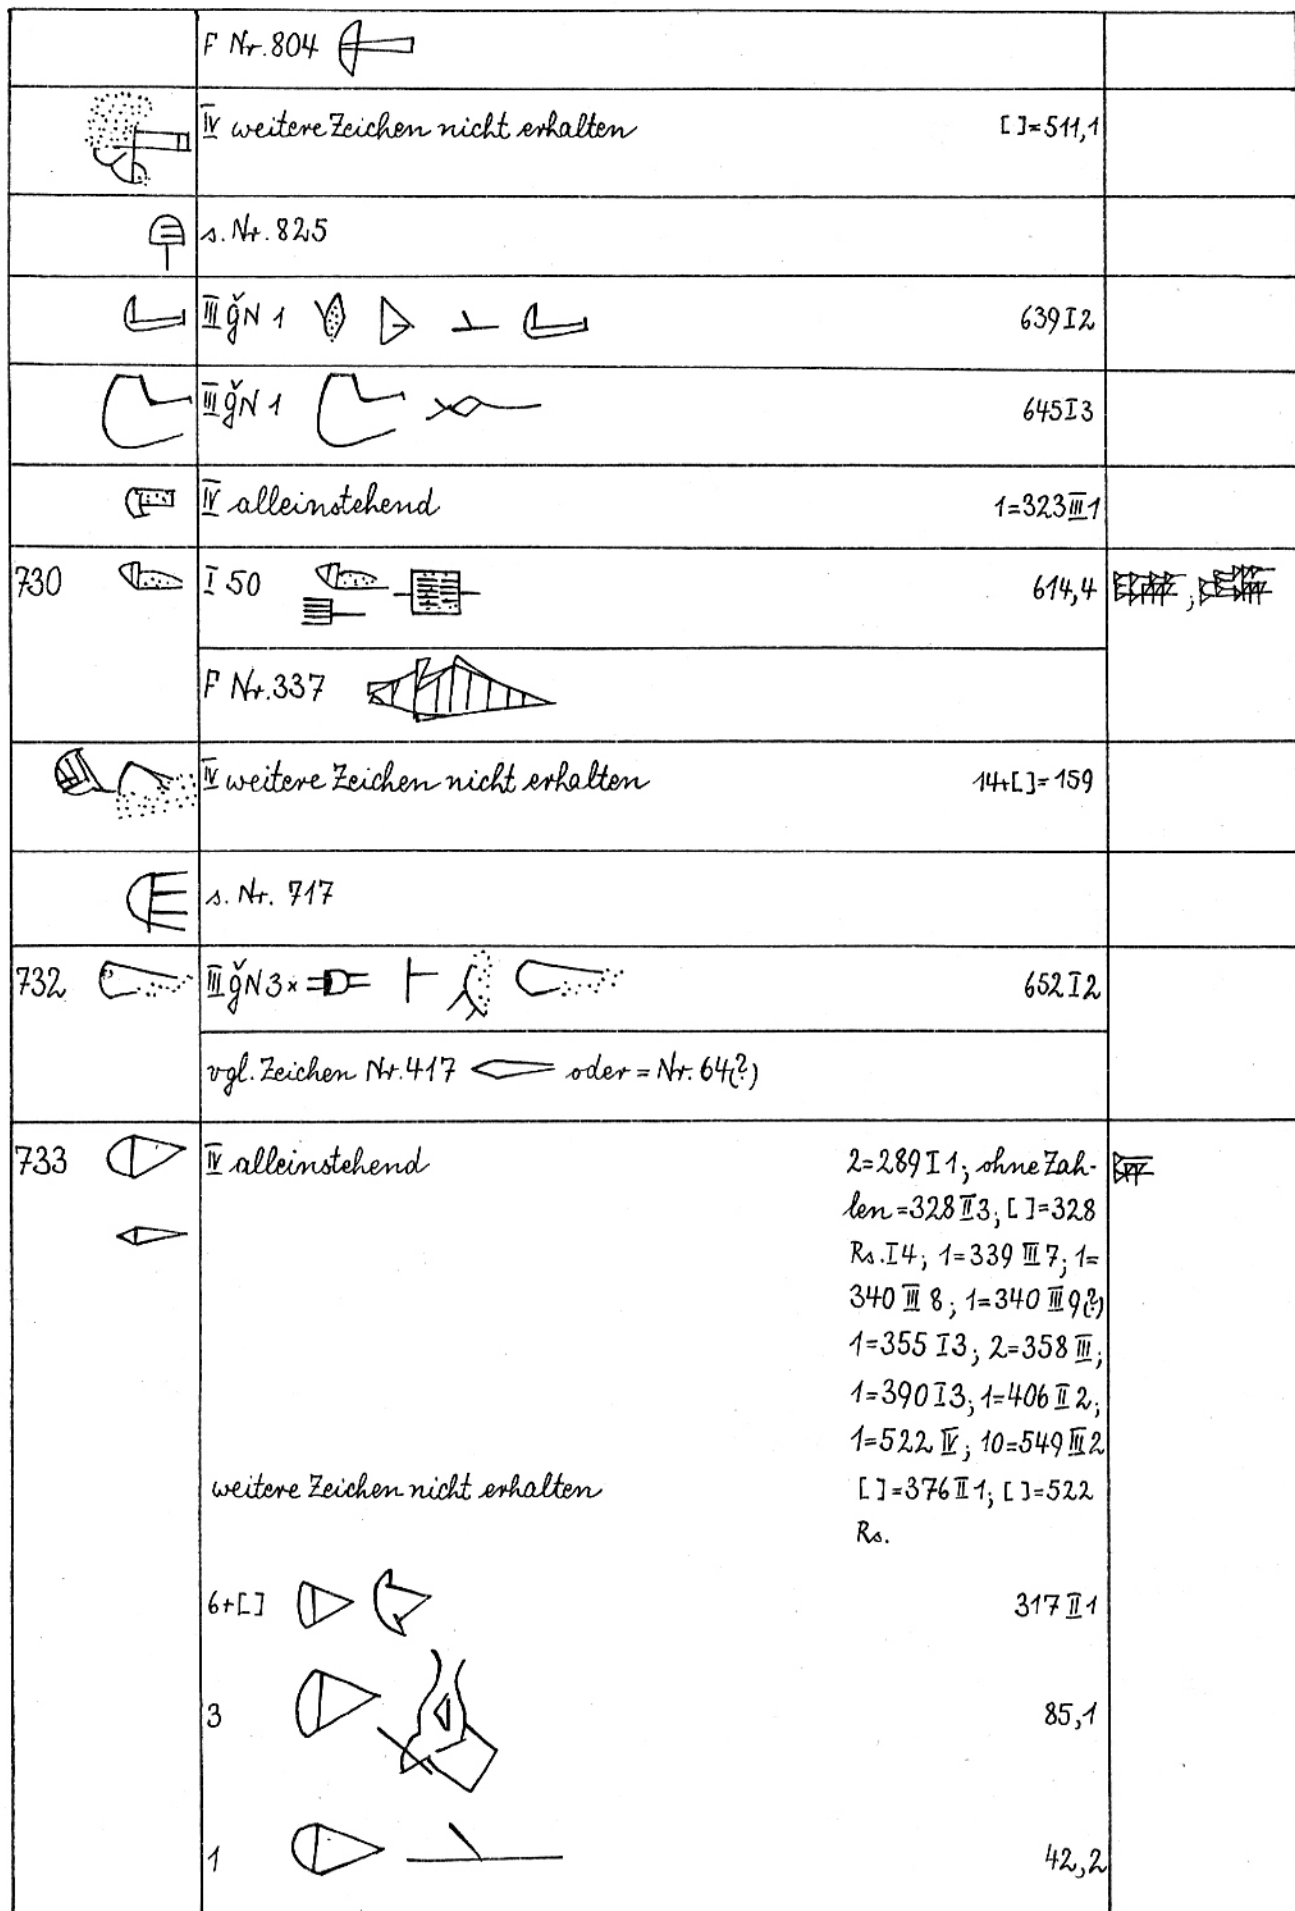 F Nr. 804
IV weitere Zeichen nicht erhalten [ ]=511,1
s. Nr. 825
III ğN 1 639 I 2
III ğN 1 645 I 3
IV alleinstehend 1=323 III 1
730 I 50 614,4
F Nr. 337
IV weitere Zeichen nicht erhalten 14+[ ]=159
s. Nr. 717
732 III ğN 3× 652 I 2
vgl. Zeichen Nr. 417 oder = Nr. 64(?)
733 IV alleinstehend 2=289 I 1; ohne Zah-
len=328 II 3; [ ]=328
Rs. I 4; 1=339 III 7; 1=
340 III 8; 1=340 III 9(?)
1=355 I 3; 2=358 III;
1=390 I 3; 1=406 II 2;
1=522 IV; 10=549 III 2
weitere Zeichen nicht erhalten [ ]=376 II 1; [ ]=522
Rs.
6+[ ] 317 II 1
3 85,1
1 42,2